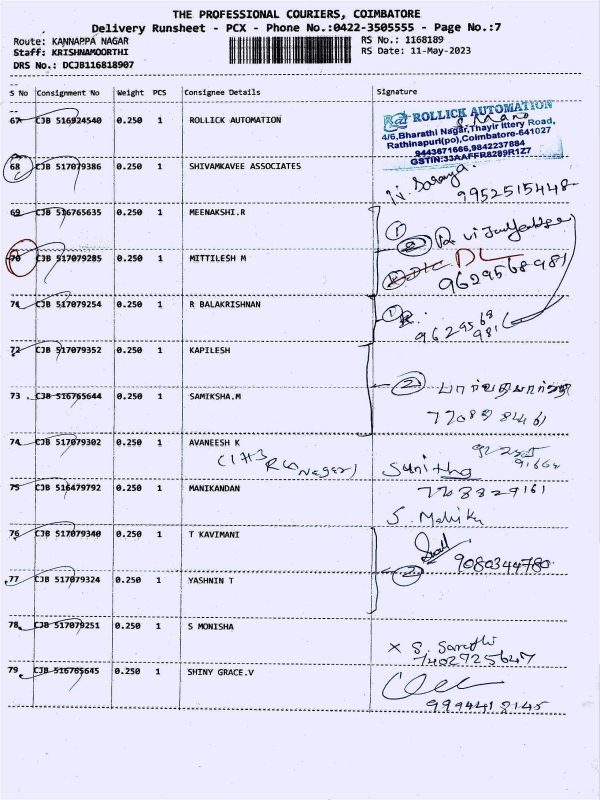 THE PROFESSIONAL COURIERS, COIMBATORE
Delivery Runsheet - PCX - Phone No.:0422-3505555 - Page No.:7
Route: KANNAPPA NAGAR RS No.: 1168189
Staff: KRISHNAMOORTHI RS Date: 11-May-2023
DRS No.: DCJB116818907
S No Consignment No Weight PCS Consignee Details Signature
67 CJB 516924540 0.250 1 ROLLICK AUTOMATION
ROLLICK AUTOMATION
S. Mano
4/6,Bharathi Nagar,Thayir Ittery Road,
Rathinapuri(po),Coimbatore-641027
9443671666,9842237884
GSTIN:33AAFFR8289R1Z7
68 CJB 517079386 0.250 1 SHIVAMKAVEE ASSOCIATES
Saranya
9952515448
69 CJB 516765635 0.250 1 MEENAKSHI.R
1
70 CJB 517079285 0.250 1 MITTILESH M
DL
9629568981
71 CJB 517079254 0.250 1 R BALAKRISHNAN
1
9629568
981
72 CJB 517079352 0.250 1 KAPILESH
2
73 CJB 516765644 0.250 1 SAMIKSHA.M
74 CJB 517079302 0.250 1 AVANEESH K
Nagar)
Sunitha
75 CJB 516479792 0.250 1 MANIKANDAN
7708829161
S.
76 CJB 517079340 0.250 1 T KAVIMANI
9080344780
77 CJB 517079324 0.250 1 YASHNIN T
2
78 CJB 517079251 0.250 1 S MONISHA
x S. Sarathi
7402725647
79 CJB 516765645 0.250 1 SHINY GRACE.V
9994418145